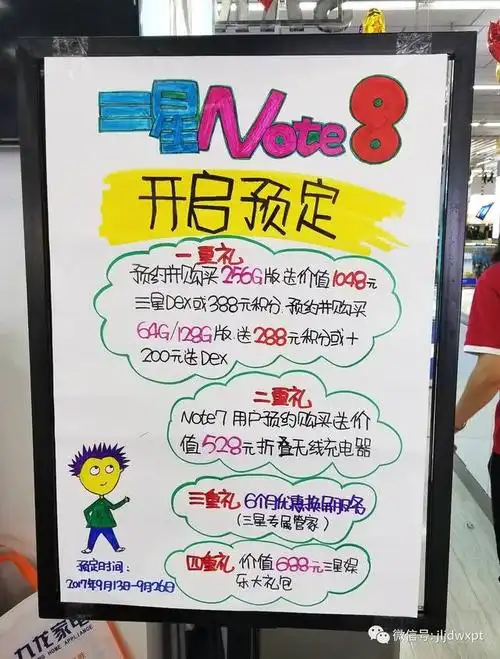 三星Note8
开启预定
一重礼
预约并购买256G版送价值1048元
三星Dex或388元积分.预约并购买
64G/128G版.送288元积分或+
200元送Dex
二重礼
Note7用户预约购买送价
值528元折叠无线充电器
三重礼 6个月优惠换屏服务
(三星专属管家)
四重礼 价值688元三星娱
乐大礼包
预定时间:
2017年9月13日-9月26日
九龙家电
HOME APPLIANCE
微信号:jljdwxpt